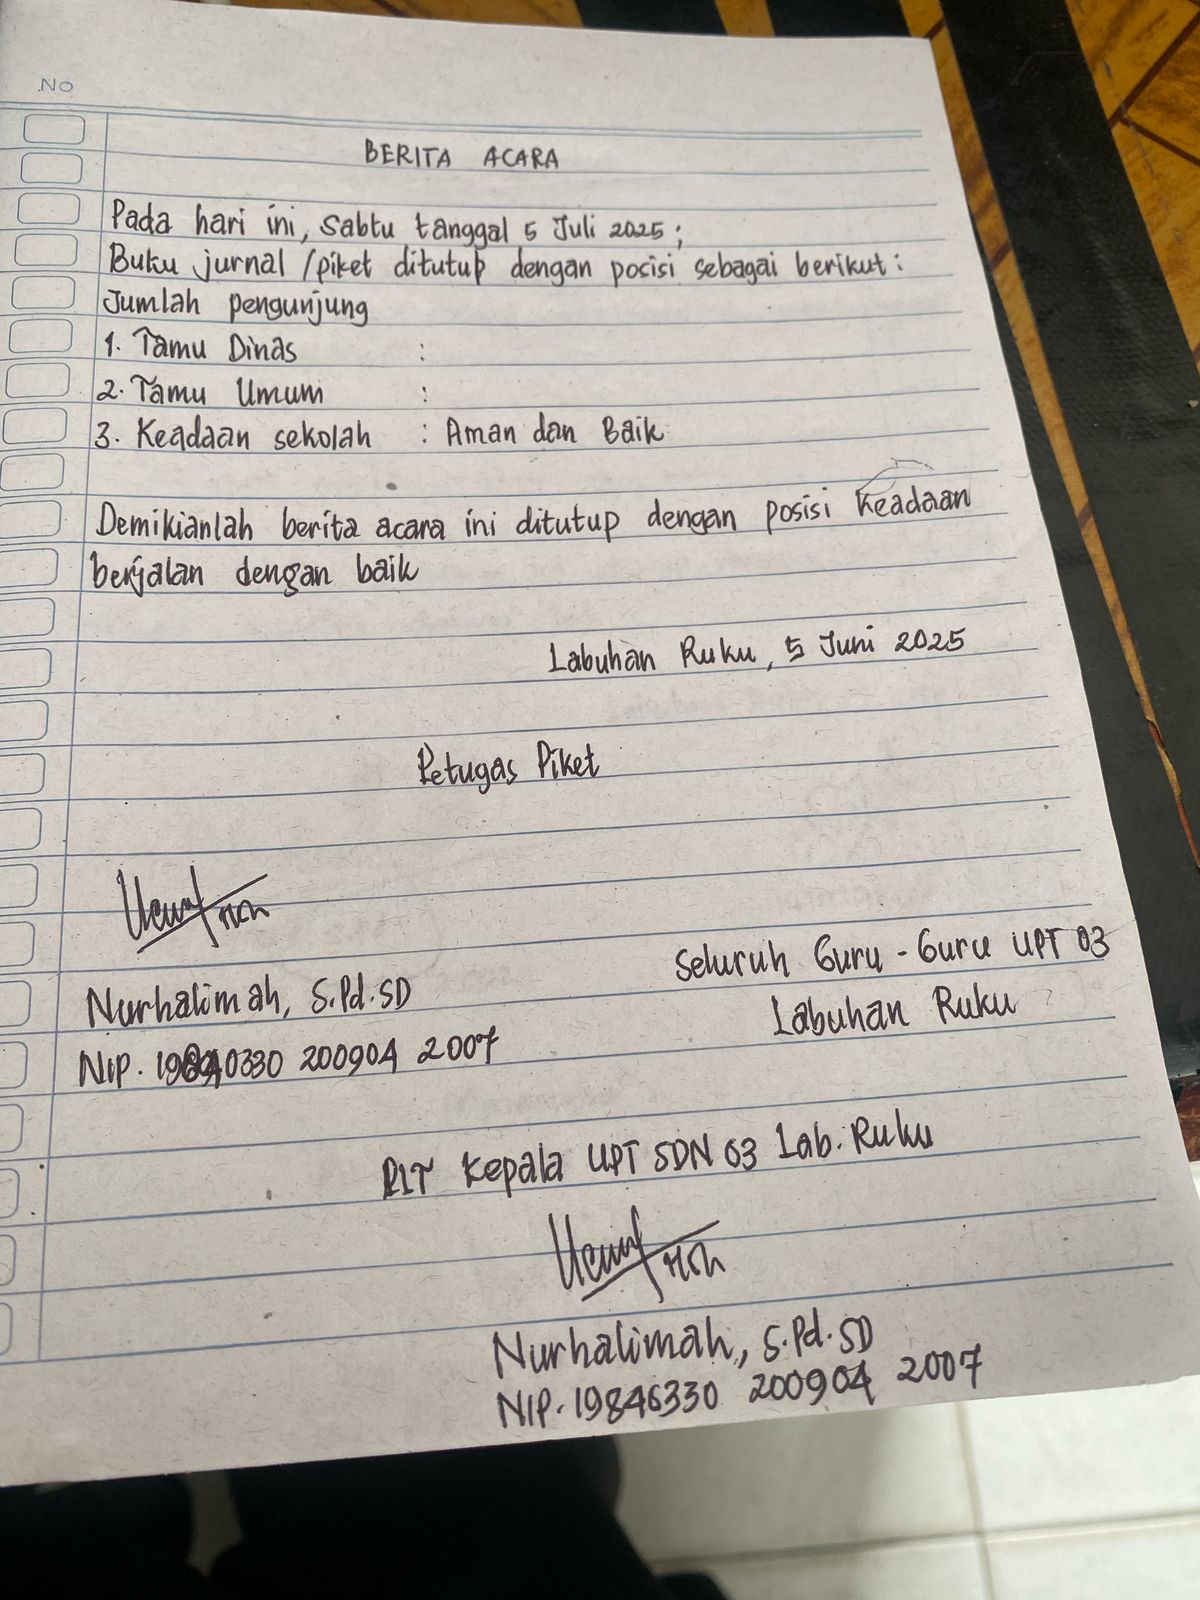 NO
BERITA ACARA
Pada hari ini, Sabtu tanggal 5 Juli 2025;
Buku jurnal /piket ditutup dengan posisi sebagai berikut:
Jumlah pengunjung
1. Tamu Dinas :
2. Tamu Umum :
3. Keadaan sekolah : Aman dan Baik
Demikianlah berita acara ini ditutup dengan posisi Keadaan
berjalan dengan baik
Labuhan Ruku, 5 Juni 2025
Petugas Piket
Nurhalimah, S.Pd.SD
NIP. 19840330 200904 2007
Seluruh Guru - Guru UPT 03
Labuhan Ruku
PLT Kepala UPT SDN 03 Lab. Ruku
Nurhalimah, S.Pd.SD
NIP. 19846330 200904 2007